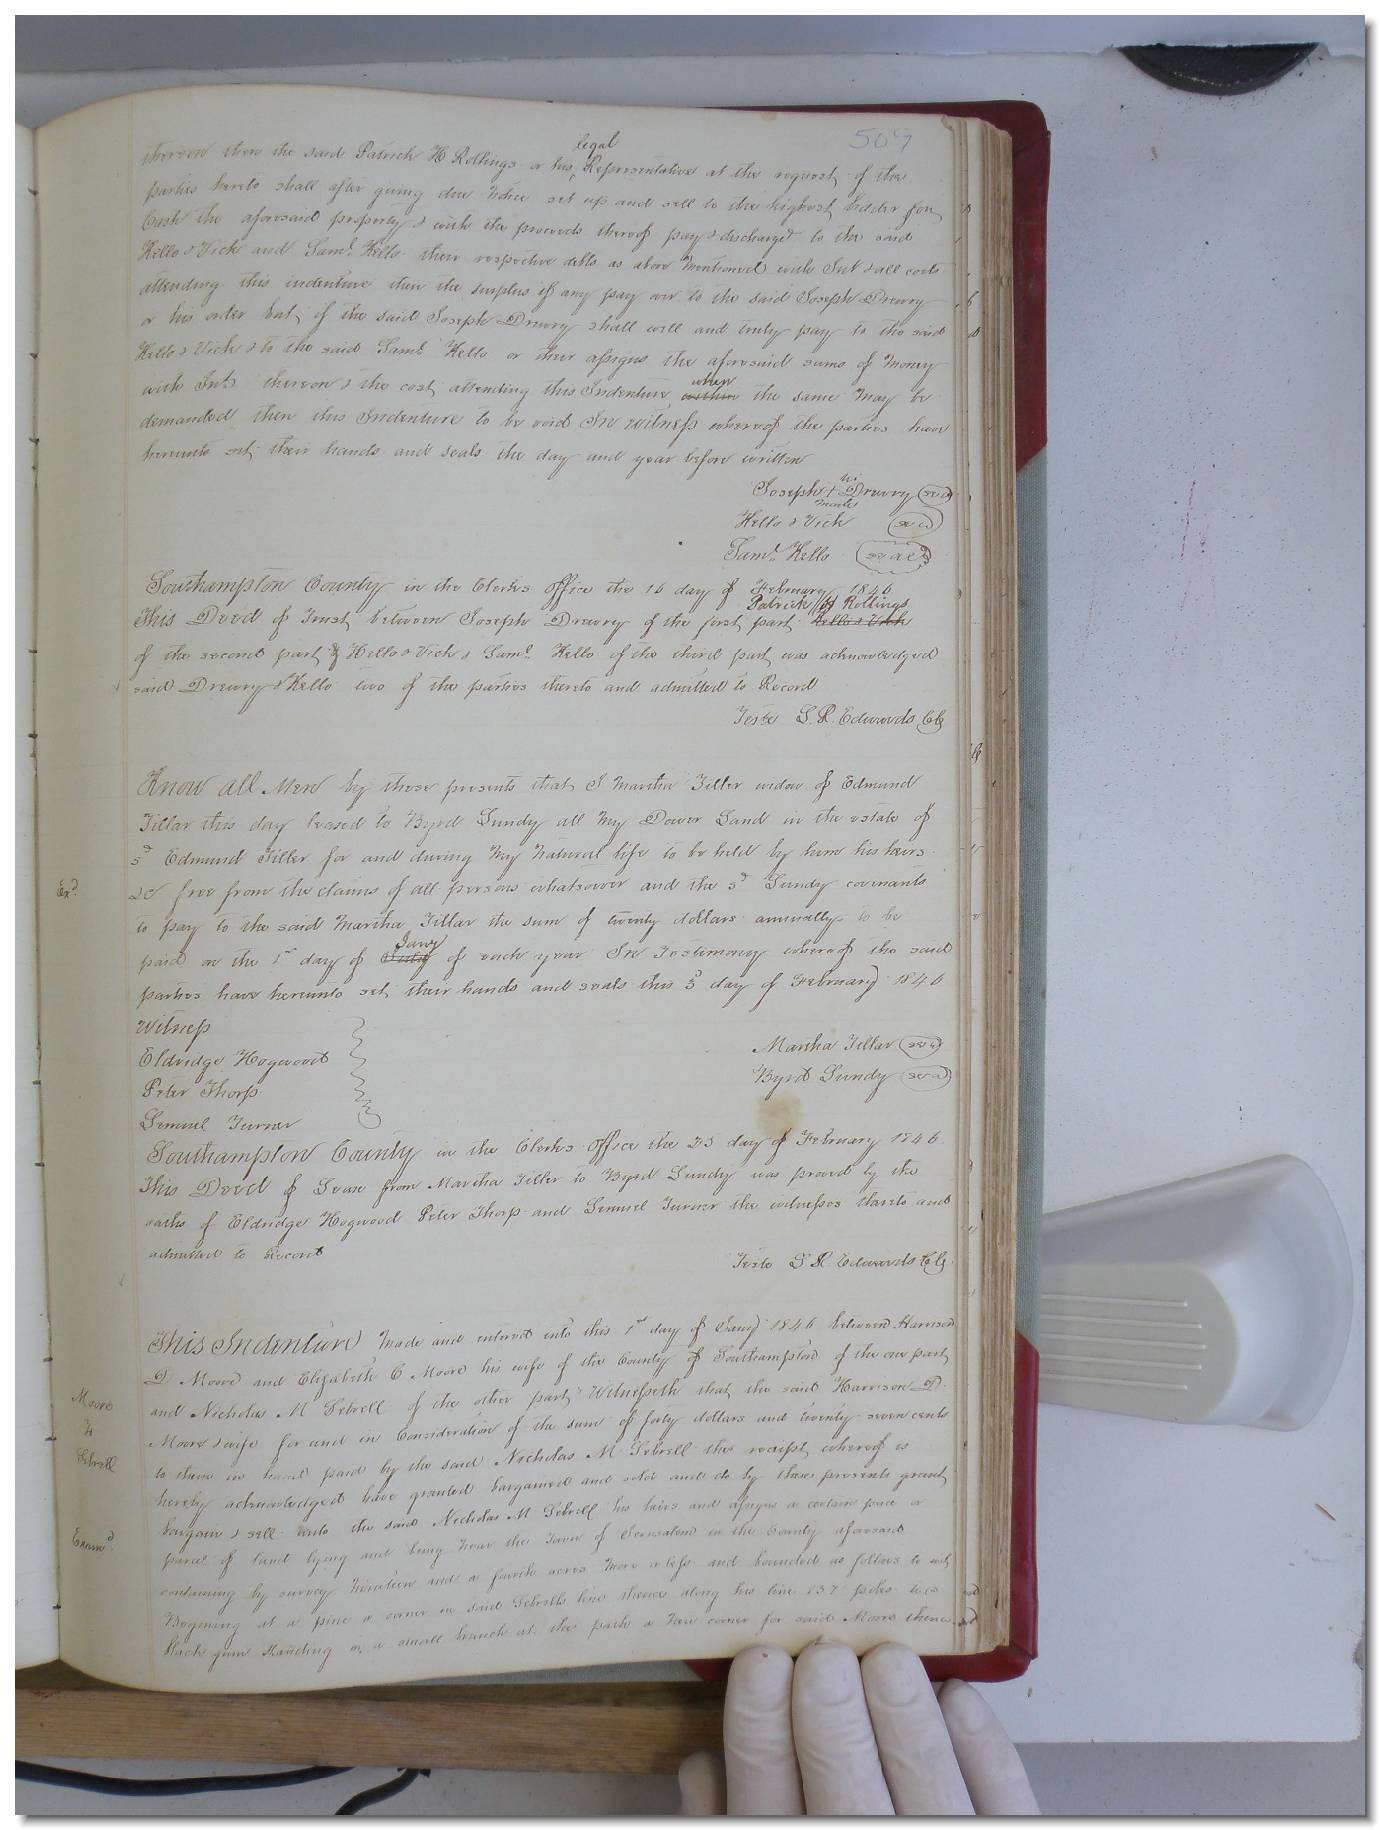 509
thereon then the said Patrick H Rollings or his legal Representative at the request of the
parties hereto shall after giving due Notice set up and sell to the highest bidder for
Cash the aforesaid property & with the proceeds thereof pay & discharge to the said
Kello & Vick and Saml. Kello their respective debts as above Mentioned with Int & all costs
attending this indenture then the surplus if any pay over to the said Joseph Drewry
or his order but if the said Joseph Drewry shall well and truly pay to the said
Kello & Vick & to the said Saml. Kello or their assigns the aforesaid sums of Money
with Int. thereon & the cost attending this Indenture within when the same May be
demanded then this Indenture to be void In witness whereof the parties have
hereunto set their hands and seals the day and year before written
Joseph his + mark Drewry seal
Kello & Vick seal
Saml. Kello seal
Southampton County in the Clerks Office the 16 day of February 1846
This Deed of Trust between Joseph Drewry of the first part Kello & Vick Patrick H Rollings
of the second part & Kello & Vick & Saml. Kello of the third part was acknowledged
said Drewry & Kello two of the parties thereto and admitted to Record
Teste L. R. Edwards Clk
Know all Men by these presents that I Martha Tiller widow of Edmund
Tillar this day leased to Byrd Lundy all My Dower Land in the estate of
sd Edmund Tiller for and during My Natural life to be held by him his heirs
&c free from the claims of all persons whatsoever and the sd Lundy covenants
to pay to the said Martha Tillar the sum of twenty dollars annually to be
paid on the 1st day of Jany of each year In Testimony whereof the said
parties have hereunto set their hands and seals this 3d day of February 1846
Exd.
Witness
Eldridge Hogwood
Peter Thorp
Lemuel Turner
Martha Tillar seal
Byrd Lundy seal
Southampton County in the Clerks Office the 23 day of February 1846
This Deed of Lease from Martha Tiller to Byrd Lundy was proved by the
oaths of Eldridge Hogwood Peter Thorp and Lemuel Turner the witnesses thereto and
admitted to Record
Teste L R. Edwards Clk
Moore
Sebrell
Examd.
This Indenture Made and entered into this 1st day of Jany 1846 between Harrison
D. Moore and Elizabeth C Moore his wife of the County of Southampton of the one part
and Nicholas M Sebrell of the other part Witnesseth that the said Harrison D.
Moore & wife for and in Consideration of the sum of forty dollars and twenty seven cents
to them in hand paid by the said Nicholas M Sebrell the receipt whereof is
hereby acknowledged have granted bargained and sold and do by these presents grant
bargain & sell unto the said Nicholas M Sebrell his heirs and assigns a certain piece or
parcel of land lying and being Near the Town of Jerusalem in the County aforesaid
containing by survey Nineteen and a fourth acres More or less and bounded as follows to wit
Begining at a pine a corner in said Sebrells line thence along his line 137 poles to a
black gum standing in a small branch at the path a New corner for said Moore thence